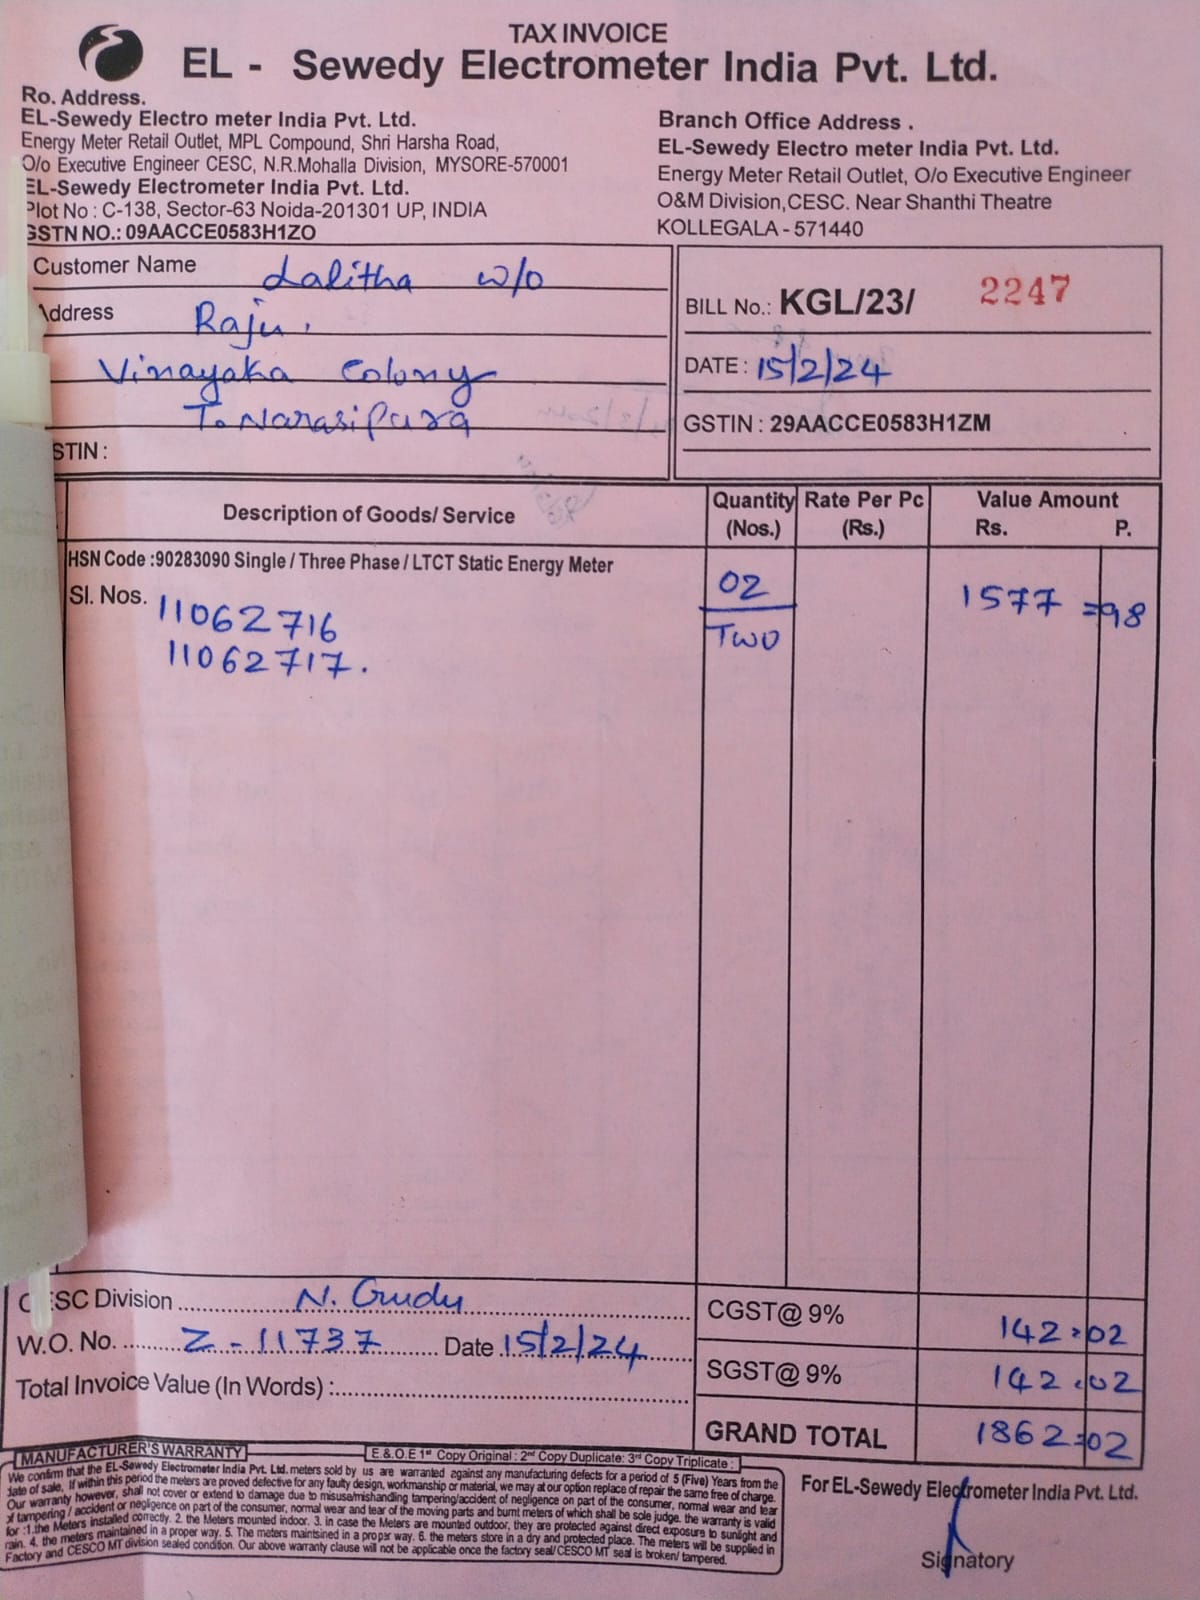 TAX INVOICE
EL - Sewedy Electrometer India Pvt. Ltd.
Ro. Address.
EL-Sewedy Electro meter India Pvt. Ltd.
Energy Meter Retail Outlet, MPL Compound, Shri Harsha Road,
O/o Executive Engineer CESC, N.R.Mohalla Division, MYSORE-570001
EL-Sewedy Electrometer India Pvt. Ltd.
Plot No : C-138, Sector-63 Noida-201301 UP, INDIA
GSTN NO.: 09AACCE0583H1ZO
Branch Office Address .
EL-Sewedy Electro meter India Pvt. Ltd.
Energy Meter Retail Outlet, O/o Executive Engineer
O&M Division,CESC. Near Shanthi Theatre
KOLLEGALA - 571440
Customer Name Lalitha w/o
Address Raju,
Vinayaka Colony
T. Narasipura
STIN :
BILL No.: KGL/23/ 2247
DATE : 15/2/24
GSTIN : 29AACCE0583H1ZM
Description of Goods/ Service Quantity (Nos.) Rate Per Pc (Rs.) Value Amount Rs. P.
HSN Code :90283090 Single / Three Phase / LTCT Static Energy Meter
Sl. Nos. 11062716 02 1577=98
11062717. Two
CESC Division N. Gudu
W.O. No. Z-11737 Date 15/2/24
Total Invoice Value (In Words) :
CGST@ 9% 142=02
SGST@ 9% 142.02
GRAND TOTAL 1862=02
MANUFACTURER'S WARRANTY
E.&O.E 1st Copy Original : 2nd Copy Duplicate: 3rd Copy Triplicate :
We confirm that the EL-Sewedy Electrometer India Pvt. Ltd. meters sold by us are warranted against any manufacturing defects for a period of 5 (Five) Years from the
date of sale. If within this period the meters are proved defective for any faulty design, workmanship or material, we may at our option replace of repair the same free of charge.
Our warranty however, shall not cover or extend to damage due to misuse/mishandling tampering/accident of negligence on part of the consumer, normal wear and tear
of tampering / accident or negligence on part of the consumer, normal wear and tear of the moving parts and burnt meters of which shall be sole judge. the warranty is valid
for :1.the Meters installed correctly. 2. the Meters mounted indoor. 3. in case the Meters are mounted outdoor, they are protected against direct exposure to sunlight and
rain. 4. the meters maintained in a proper way. 5. The meters maintsined in a propar way. 6. the meters store in a dry and protected place. The meters will be supplied in
Factory and CESCO MT division sealed condition. Our above warranty clause will not be applicable once the factory seal/CESCO MT seal is broken/ tampered.
For EL-Sewedy Electrometer India Pvt. Ltd.
Signatory